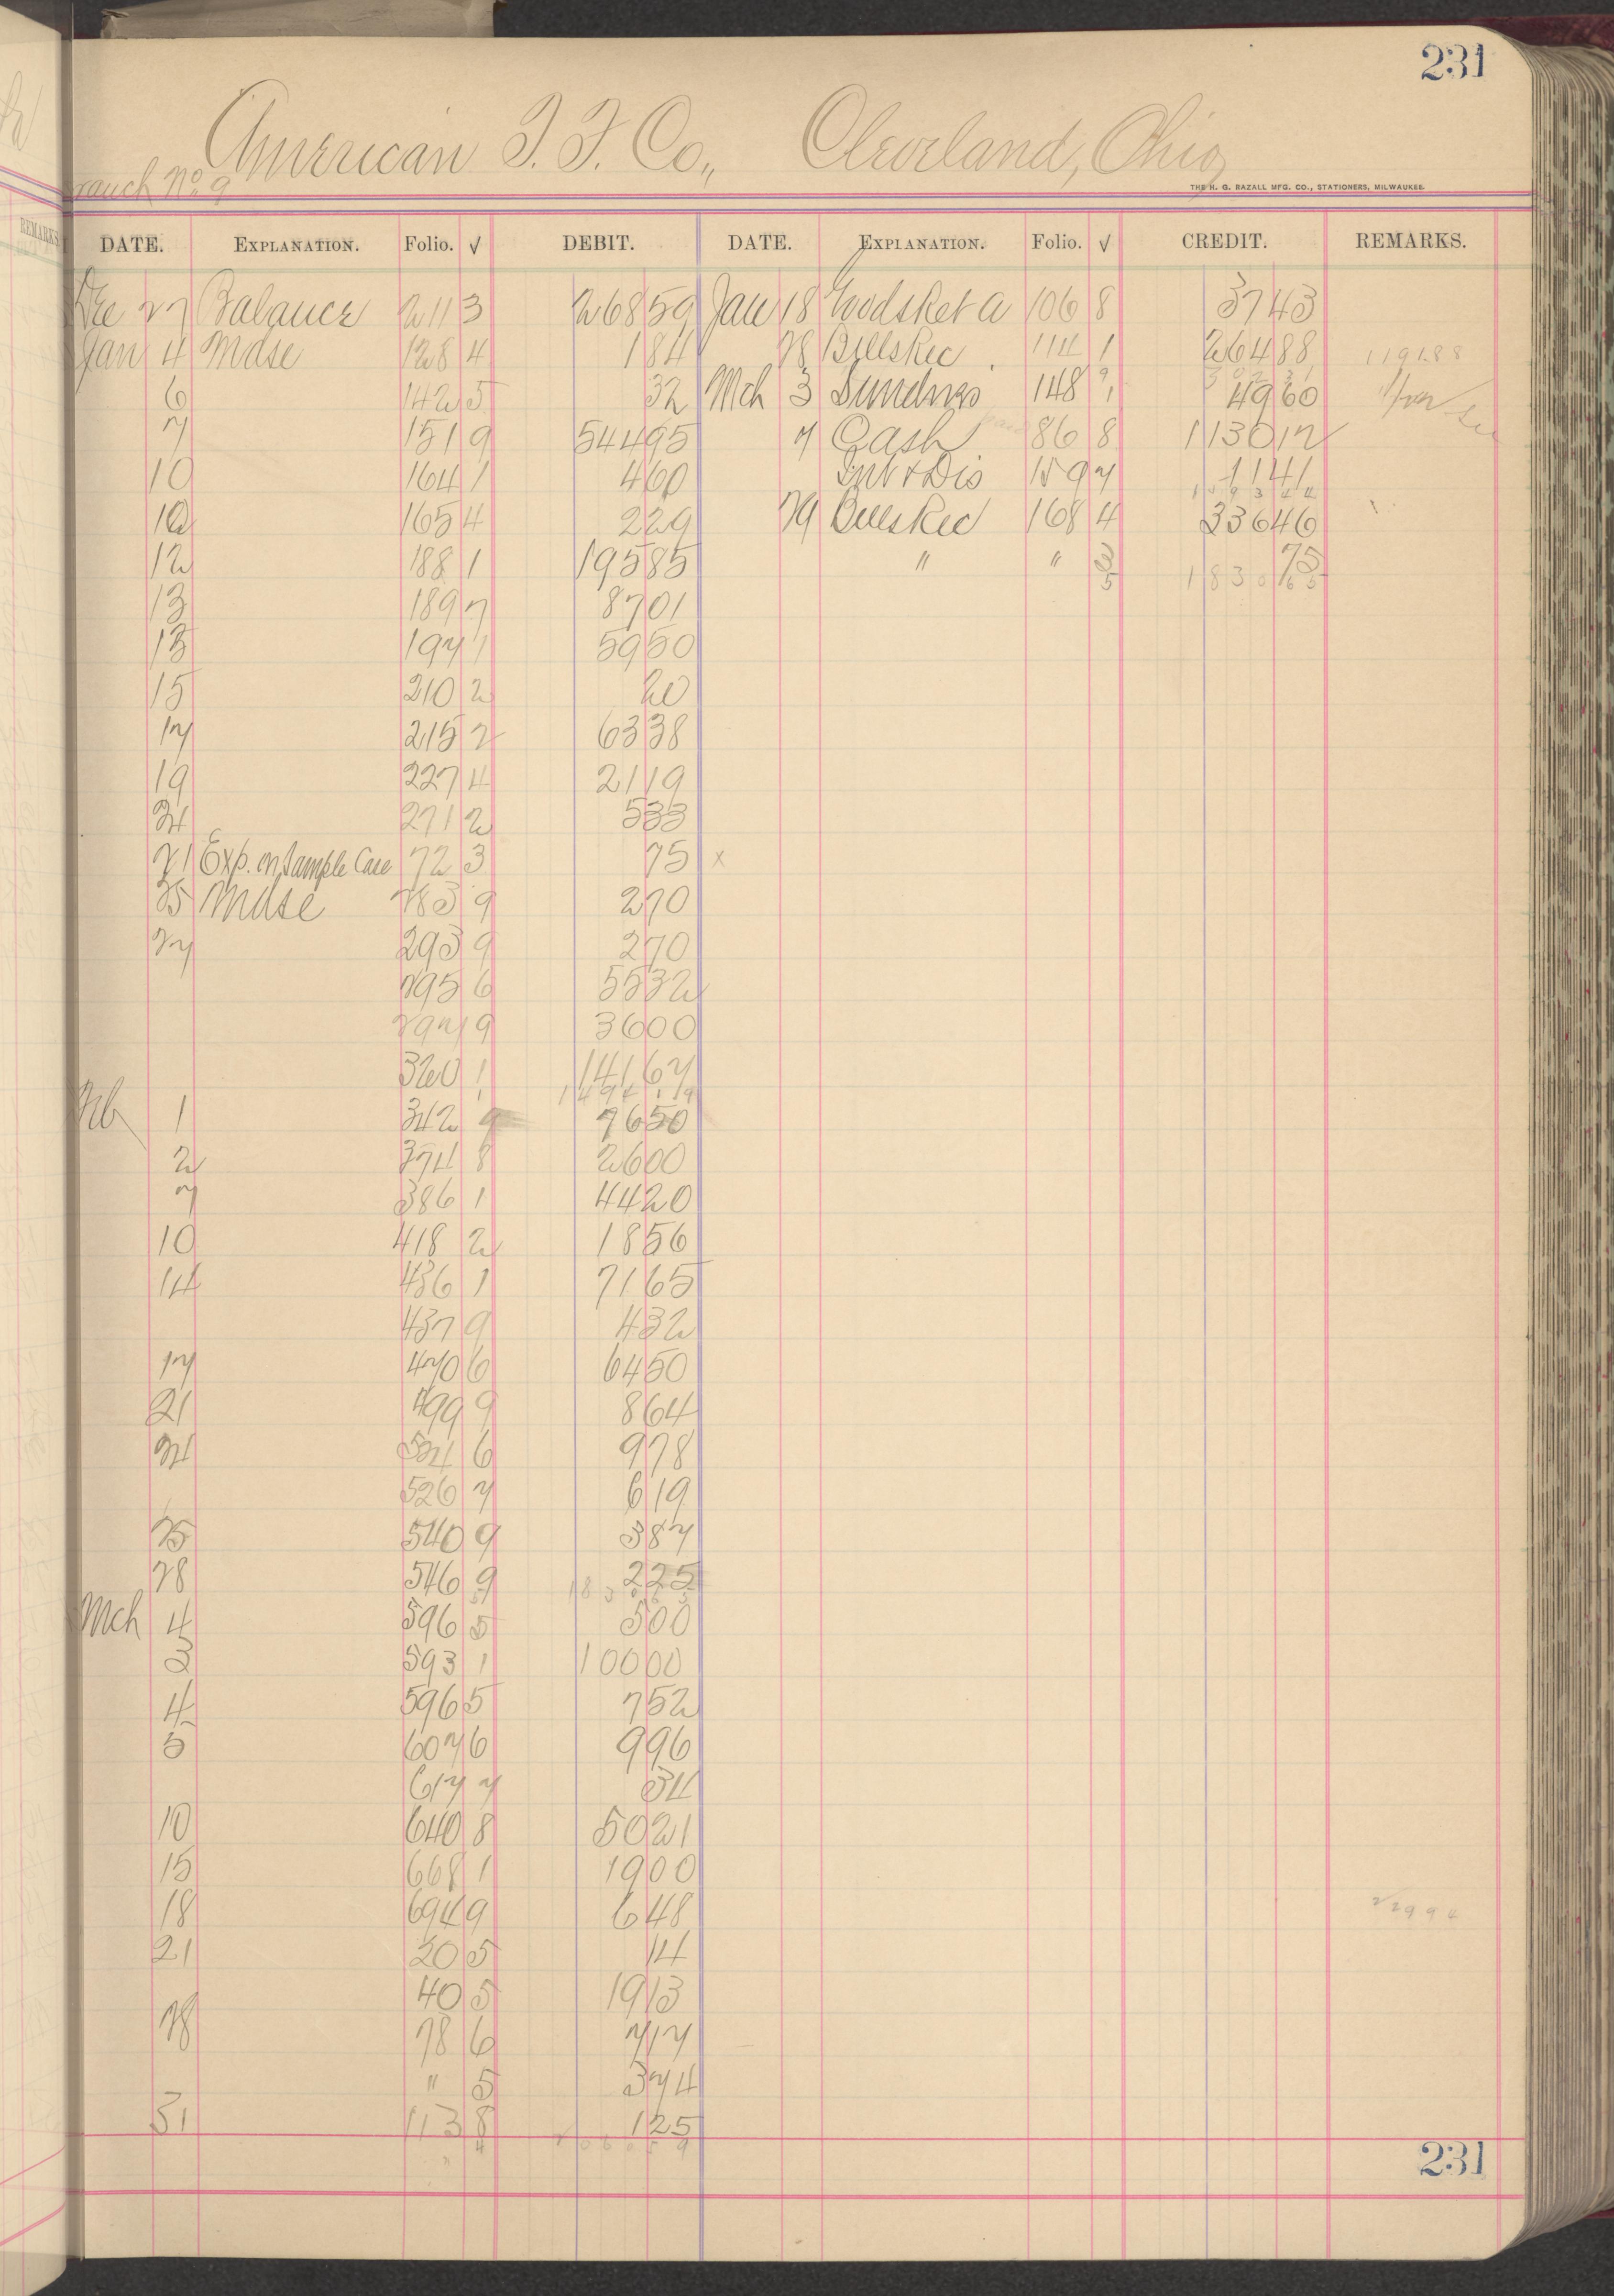 231
American T. F. Co., Cleveland, Ohio
ranch No. 9
THE H. G. RAZALL MFG. CO., STATIONERS, MILWAUKEE.
REMARKS
DATE. EXPLANATION. Folio. √ DEBIT. DATE. EXPLANATION. Folio. √ CREDIT. REMARKS.
Dec 27 Balance 211 3 268 59 Jan 18 Goods Ret a 106 8 37 43
Jan 4 Mdse 128 4 1 84 28 Bills Rec 114 1 264 88 1191.88
6 142 5 32 Mch 3 Sundries 148 49 60
7 151 9 544 95 7 Cash 86 8 1130 12
10 164 1 4 60 Int & Dis 159 7 11 41
10 165 4 2 29 29 Bills Rec 168 4 336 46
12 188 1 195 85 " " 3 75
5 1830 65
13 189 7 87 01
13 197 1 59 50
15 210 2 20
17 215 2 63 38
19 227 4 21 19
24 271 2 5 33
21 Exp. on Sample Case 72 3 75 x
25 Mdse 283 9 2 70
27 293 9 2 70
295 6 55 32
297 9 36 00
320 1 141 67
Feb 1 342 9 76 50
2 374 8 26 00
7 386 1 44 20
10 418 2 18 56
14 436 1 71 65
437 9 4 32
17 470 6 64 50
21 499 9 8 64
24 524 6 9 78
526 7 6 19
25 540 9 3 87
28 546 9 2 25
Mch 4 596 5 5 00
3 593 1 100 00
4 596 5 7 52
5 607 6 9 96
617 7 34
10 640 8 50 21
15 668 1 19 00
18 694 9 6 48 2299 4
21 20 5 14
40 5 19 13
28 78 6 7 17
" 5 3 74
31 113 8 1 25
4 2060 59
231